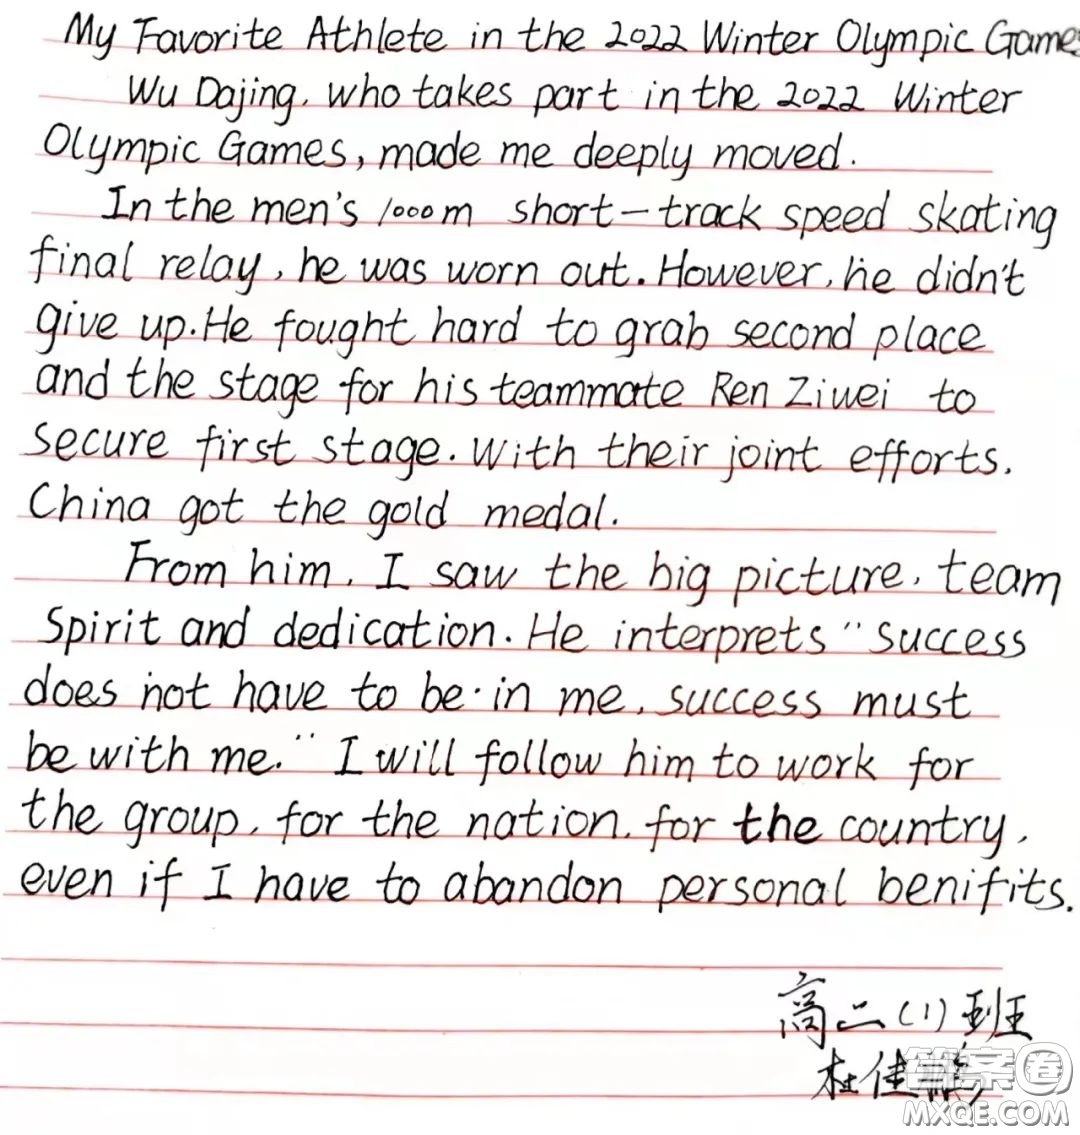 My Favorite Athlete in the 2022 Winter Olympic Games
Wu Dajing, who takes part in the 2022 Winter
Olympic Games, made me deeply moved.
In the men's 1000m short-track speed skating
final relay, he was worn out. However, he didn't
give up. He fought hard to grab second place
and the stage for his teammate Ren Ziwei to
secure first stage. With their joint efforts,
China got the gold medal.
From him, I saw the big picture, team
Spirit and dedication. He interprets "Success
does not have to be in me, success must
be with me." I will follow him to work for
the group, for the nation, for the country,
even if I have to abandon personal benifits.
高二(1)班
杜佳
答案圈
MXQE.COM